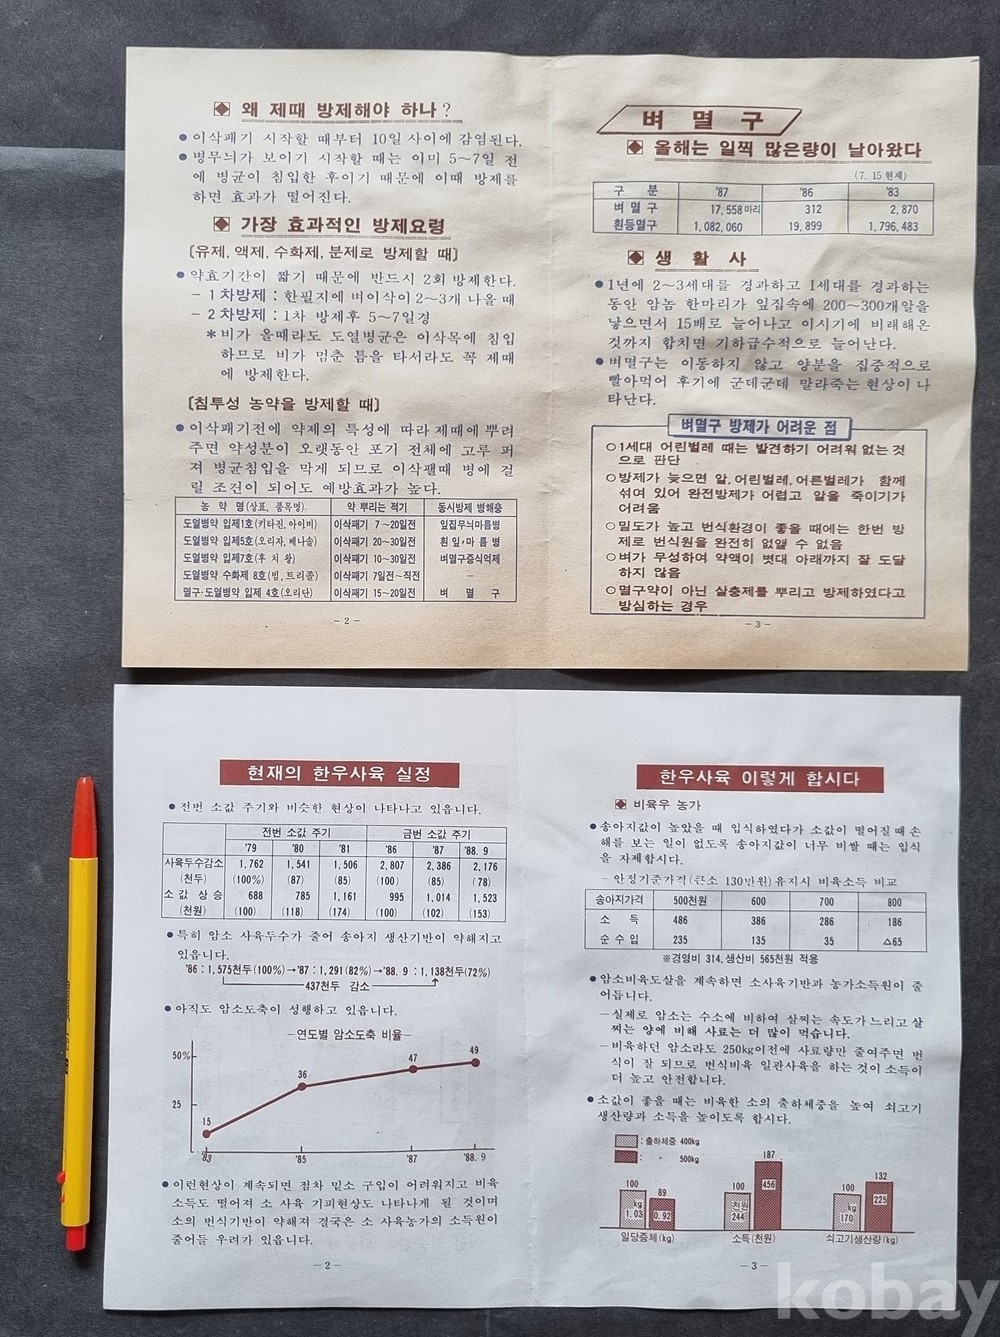 ◆ 왜 제때 방제해야 하나?
● 이삭패기 시작할 때부터 10일 사이에 감염된다.
● 병무늬가 보이기 시작할 때는 이미 5~7일 전
에 병균이 침입한 후이기 때문에 이때 방제를
하면 효과가 떨어진다.
◆ 가장 효과적인 방제요령
〔유제, 액제, 수화제, 분제로 방제할 때〕
● 약효기간이 짧기 때문에 반드시 2회 방제한다.
- 1차방제 : 한필지에 벼이삭이 2~3개 나올 때
- 2차방제 : 1차 방제후 5~7일경
*비가 올때라도 도열병균은 이삭목에 침입
하므로 비가 멈춘 틈을 타서라도 꼭 제때
에 방제한다.
〔침투성 농약을 방제할 때〕
● 이삭패기전에 약제의 특성에 따라 제때에 뿌려
주면 약성분이 오랫동안 포기 전체에 고루 퍼
져 병균침입을 막게 되므로 이삭팰때 병에 걸
릴 조건이 되어도 예방효과가 높다.
농 약 명(상표, 품목명). 약 뿌리는 적기 동시방제 병해충
도열병약 입제1호(키타진, 아이비) 이삭패기 7~20일전 잎집무늬마름병
도열병약 입제5호(오리자, 베나솔) 이삭패기 20~30일전 흰잎마름병
도열병약 입제7호(후치왕) 이삭패기 10~30일전 벼멸구증식억제
도열병약 수화제 8호(빔, 트리졸) 이삭패기 7일전~직전 -
멸구·도열병약 입제 4호(오리단) 이삭패기 15~20일전 벼 멸 구
- 2 -
벼 멸 구
◆ 올해는 일찍 많은량이 날아왔다
(7. 15 현재)
구 분 '87 '86 '83
벼 멸 구 17,558마리 312 2,870
흰등멸구 1,082,060 19,899 1,796,483
◆ 생 활 사
● 1년에 2~3세대를 경과하고 1세대를 경과하는
동안 암놈 한마리가 잎집속에 200~300개알을
낳으면서 15배로 늘어나고 이시기에 비래해온
것까지 합치면 기하급수적으로 늘어난다.
● 벼멸구는 이동하지 않고 양분을 집중적으로
빨아먹어 후기에 군데군데 말라죽는 현상이 나
타난다.
벼멸구 방제가 어려운 점
○1세대 어린벌레 때는 발견하기 어려워 없는것
으로 판단
○방제가 늦으면 알, 어린벌레, 어른벌레가 함께
섞여 있어 완전방제가 어렵고 알을 죽이기가
어려움
○밀도가 높고 번식환경이 좋을 때에는 한번 방
제로 번식원을 완전히 없앨 수 없음
○벼가 무성하여 약액이 볏대 아래까지 잘 도달
하지 않음
○멸구약이 아닌 살충제를 뿌리고 방제하였다고
방심하는 경우
- 3 -
현재의 한우사육 실정
● 전번 소값 주기와 비슷한 현상이 나타나고 있읍니다.
전번 소값 주기 금번 소값 주기
'79 '80 '81 '86 '87 '88. 9
사육두수감소 1,762 1,541 1,506 2,807 2,386 2,176
(천두) (100%) (87) (85) (100) (85) (78)
소 값 상 승 688 785 1,161 995 1,014 1,523
(천원) (100) (118) (174) (100) (102) (153)
● 특히 암소 사육두수가 줄어 송아지 생산기반이 약해지고
있읍니다.
'86 : 1,575천두(100%)→'87 : 1,291(82%)→'88. 9 : 1,138천두(72%)
437천두 감소
● 아직도 암소도축이 성행하고 있읍니다.
-연도별 암소도축 비율-
50%
25
15 36 47 49
'83 '85 '87 '88. 9
● 이런현상이 계속되면 점차 밑소 구입이 어려워지고 비육
소득도 떨어져 소 사육 기피현상도 나타나게 될 것이며
소의 번식기반이 약해져 결국은 소 사육농가의 소득원이
줄어들 우려가 있읍니다.
- 2 -
한우사육 이렇게 합시다
◆ 비육우 농가
● 송아지값이 높았을 때 입식하였다가 소값이 떨어질 때 손
해를 보는 일이 없도록 송아지값이 너무 비쌀 때는 입식
을 자제합시다.
- 안정기준가격(큰소 130만원)유지시 비육소득 비교
송아지가격 500천원 600 700 800
소 득 486 386 286 186
순 수 입 235 135 35 △65
※경영비 314, 생산비 565천원 적용
● 암소비육도살을 계속하면 소사육기반과 농가소득원이 줄
어듭니다.
- 실제로 암소는 수소에 비하여 살찌는 속도가 느리고 살
찌는 양에 비해 사료는 더 많이 먹습니다.
- 비육하던 암소라도 250kg이전에 사료량만 줄여주면 번
식이 잘 되므로 번식비육 일관사육을 하는 것이 소득이
더 높고 안전합니다.
● 소값이 좋을 때는 비육한 소의 출하체중을 높여 쇠고기
생산량과 소득을 높이도록 합시다.
: 출하체중 400kg
: 〃 500kg
100 89 100 187 100 132
kg 1.03 0.92 천원 244 456 kg 170 225
일당증체(kg) 소득(천원) 쇠고기생산량(kg)
- 3 -
kobay